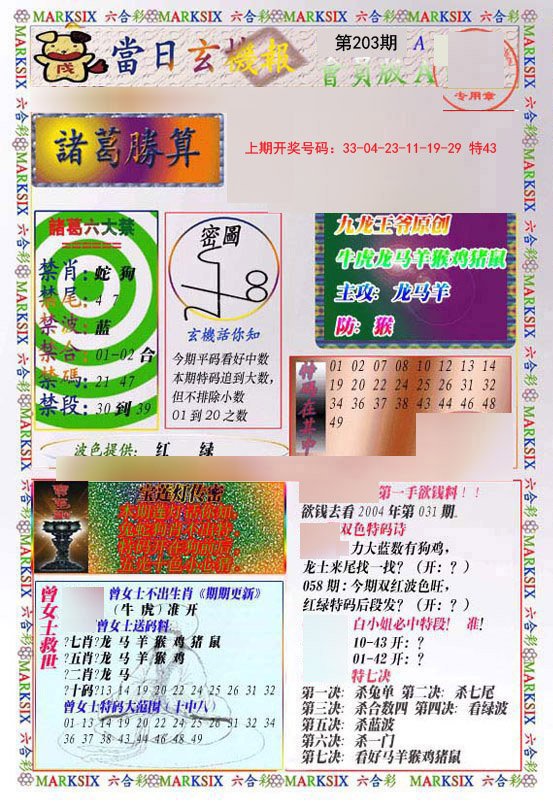 MARKSIX 六合彩 MARKSIX 六合彩 MARKSIX 六合彩 MARKSIX 六合彩
當日玄機報
第203期 A
會員版A
专用章
諸葛勝算
上期开奖号码：33-04-23-11-19-29 特43
諸葛六大禁
禁肖：蛇 狗
禁尾：4 7
禁波：蓝
禁合：01-02 合
禁碼：21 47
禁段：30 到 39
密圖
玄機話你知
今期平码看好中数
本期特码追到大数，
但不排除小数
01 到 20 之数
九龙王爷原创
牛虎龙马羊猴鸡猪鼠
主攻：龙马羊
防：猴
特码在其中
01 02 07 08 10 12 13 14
19 20 22 24 25 26 31 32
34 36 37 38 43 44 46 48
49
波色提供： 红 绿
宝莲灯传密
曾女士救世
曾女士不出生肖《期期更新》
（牛 虎）准 开
曾女士送码料
?七肖?龙 马 羊 猴 鸡 猪 鼠
?五肖?龙 马 羊 猴 鸡
?二肖?龙 马
?十码?13 14 19 20 22 24 25 26 31 32
曾女士特码大范围（十中八）
01 13 14 19 20 22 24 25 26 31 32 34
36 37 38 43 44 46 48 49
第一手欲钱料！！
欲钱去看 2004 年第 031 期。
双色特码诗
力大蓝数有狗鸡，
龙士来尾找一找？（开：？）
058 期：今期双红波色旺，
红绿特码后段发？（开：？）
白小姐必中特段！ 准!
10-43 开：？
01-42 开：？
特七决
第一决：杀兔单 第二决：杀七尾
第三决：杀合数四 第四决：看绿波
第五决：杀蓝波
第六决：杀一门
第七决：看好马羊猴鸡猪鼠
MARKSIX 六合彩 MARKSIX 六合彩 MARKSIX 六合彩 MARKSIX 六合彩